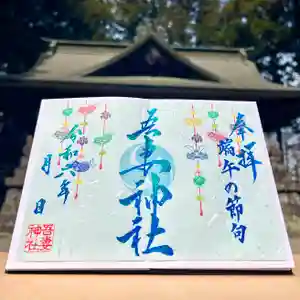 奉拝
端午の節句
吾妻神社
令和六年
月 日
吾妻
神社